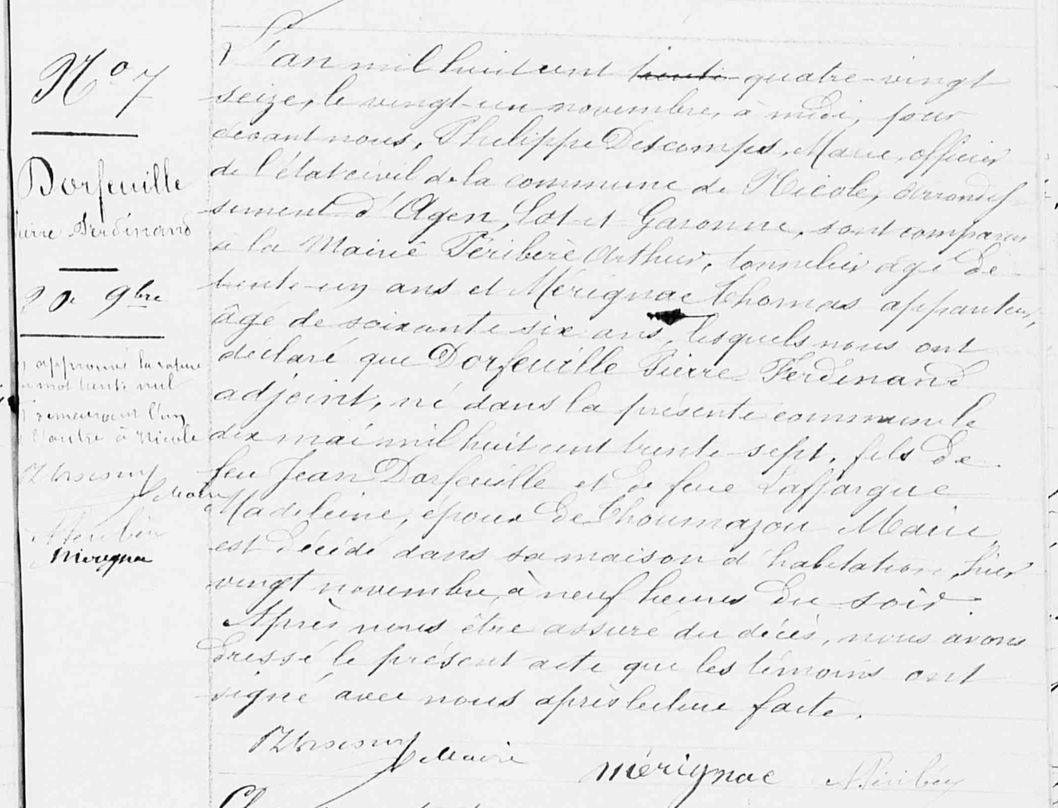 N° 7
Dorfeuille
Pierre Ferdinand
20 9bre
approuvé la rature
mot trente mil
demeurant l'un
l'autre à Nicole
Maire
Mérignac
L'an mil huit cent trente quatre-vingt
seize, le vingt-un novembre, à midi, pour
devant nous, Philippe Descomps, Maire, officier
de l'état civil de la commune de Nicole, arrondis-
sement d'Agen, Lot et Garonne, sont comparus
à la Mairie Féribère Arthur, tonnelier âgé de
trente-un ans et Mérignac Thomas appariteur,
âgé de soixante six ans, lesquels nous ont
déclaré que Dorfeuille Pierre Ferdinand
adjoint, né dans la présente commune le
dix mai mil huit cent trente-sept, fils de
feu Jean Dorfeuille et de feue Laffargue
Madeleine, époux de Thoumazou Marie,
est décédé dans sa maison d'habitation, hier
vingt novembre, à neuf heures du soir.
Après nous être assuré du décès, nous avons
dressé le présent acte que les témoins ont
signé avec nous après lecture faite.
Maire
Mérignac